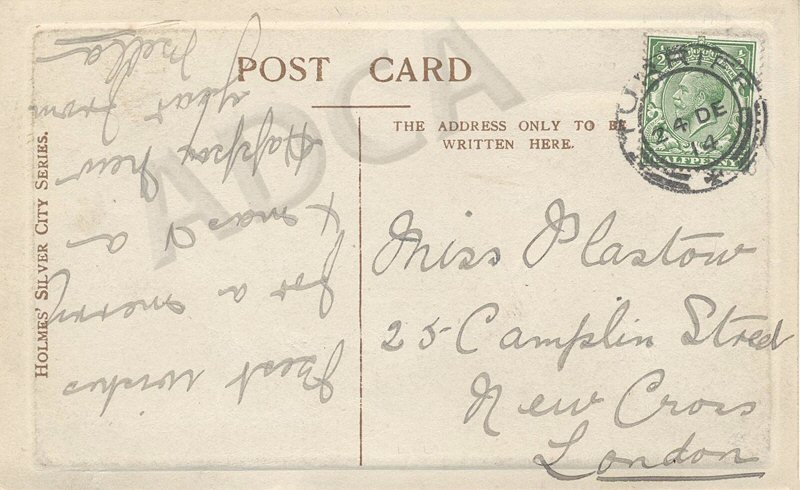 POST CARD
THE ADDRESS ONLY TO BE
WRITTEN HERE.
HOLMES' SILVER CITY SERIES.
Best wishes
for a merry
Xmas & a
Happy New
year from
Miss Plastow
25 Camplin Street
New Cross
London
24 DE
14
HALFPENNY
ADCA